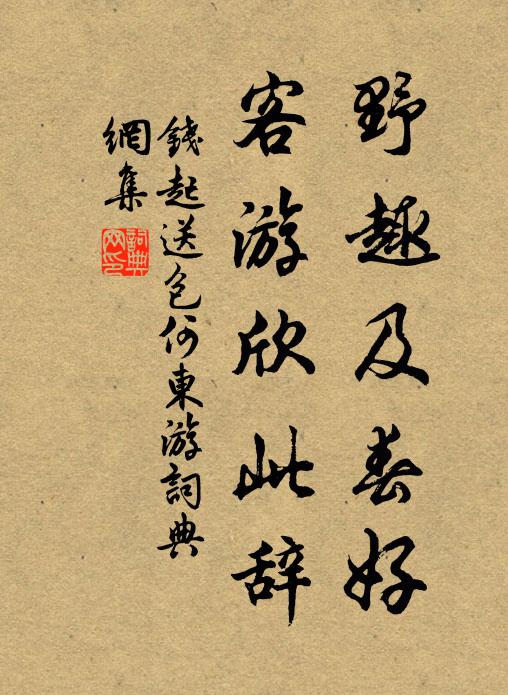 野趣及春好
客游欣此辞
錢起送包何東游詞典
網集
詞典
网印